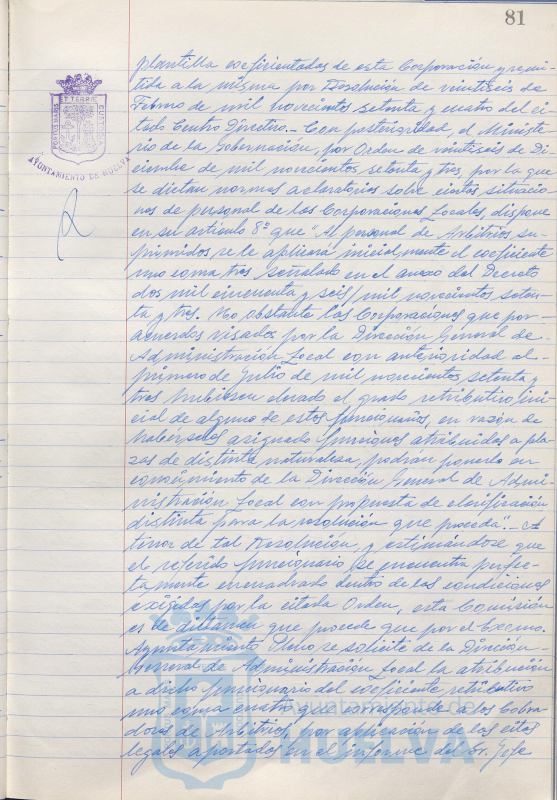 81
plantilla coeficientadas de esta Corporación y remi-
tida a la misma por Resolución de veintiseis de
Febrero de mil novecientos setenta y cuatro del ci-
tado Centro Directivo.- Con posterioridad, el Ministe-
rio de la Gobernación, por Orden de veintiseis de Di-
ciembre de mil novecientos setenta y tres, por la que
se dictan normas aclaratorias sobre ciertas situacio-
nes de personal de las Corporaciones Locales, dispone
en su artículo 8º que "Al personal de Arbitrios su-
primidos se le aplicará inicialmente el coeficiente
uno coma tres señalado en el anexo del Decreto
dos mil cincuenta y seis/mil novecientos seten-
ta y tres. No obstante las Corporaciones que por
acuerdos visados por la Dirección General de
Administración Local con anterioridad al
primero de Julio de mil novecientos setenta y
tres hubiesen elevado el grado retributivo ini-
cial de alguno de estos funcionarios, en razón de
habérseles asignado funciones atribuidas a pla-
zas de distinta naturaleza, podrán ponerlo en
conocimiento de la Dirección General de Admi-
nistración Local con propuesta de clasificación
distinta para la resolución que proceda".- A
tenor de tal Resolución, y estimándose que
el referido funcionario se encuentra perfec-
tamente encuadrado dentro de las condiciones
exigidas por la citada Orden, esta Comisión
es de dictamen que procede que por el Excmo.
Ayuntamiento Pleno se solicite de la Dirección
General de Administración Local la atribución
a dicho funcionario del coeficiente retributivo
uno coma cuatro que corresponde a los Cobra-
dores de Arbitrios, por aplicación de las citas
legales aportadas en el informe del Sr. Jefe
AYUNTAMIENTO DE HUELVA
PORTUS MARIS ET TERRAE CUSTODIA
Ayuntamiento de
HUELVA